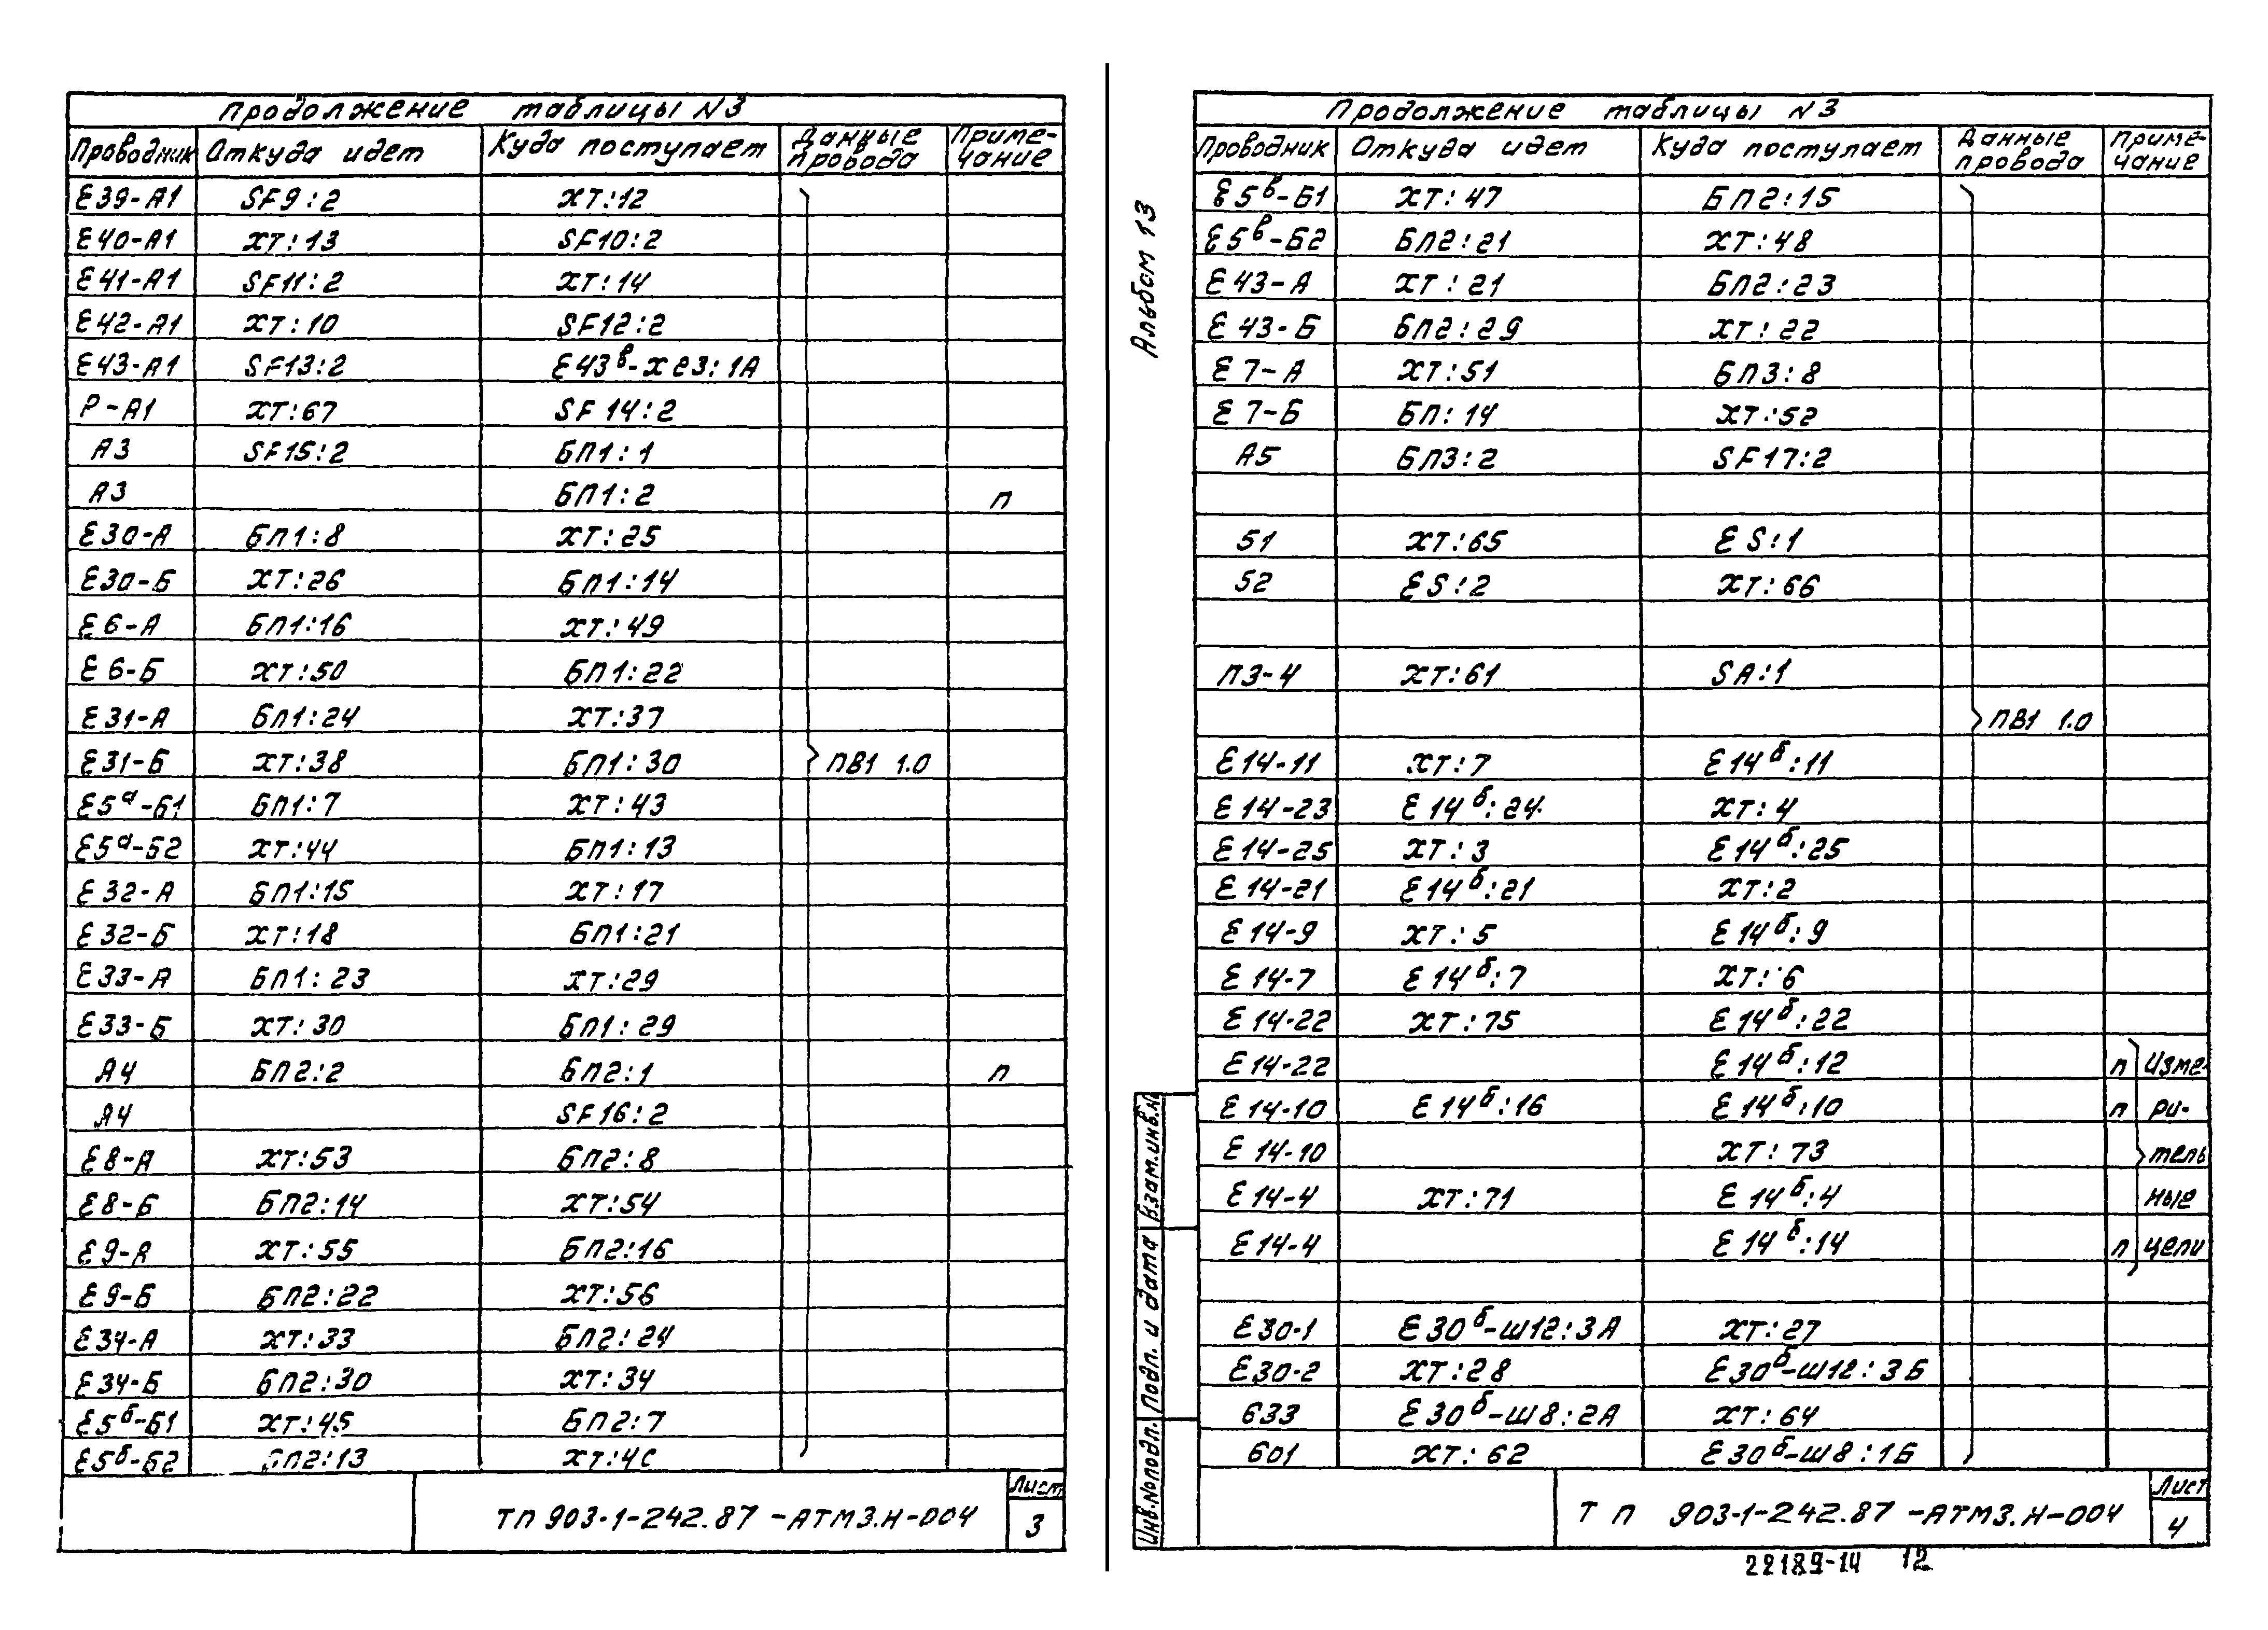 Продолжение таблицы N3
Проводник Откуда идет Куда поступает Данные провода Приме-чание
Е39-А1 SF9:2 ХТ:12
Е40-А1 ХТ:13 SF10:2
Е41-А1 SF11:2 ХТ:14
Е42-А1 ХТ:10 SF12:2
Е43-А1 SF13:2 Е43в-Х23:1А
Р-А1 ХТ:67 SF14:2
А3 SF15:2 БП1:1
А3 БП1:2 п
Е30-А БП1:8 ХТ:25
Е30-Б ХТ:26 БП1:14
Е6-А БП1:16 ХТ:49
Е6-Б ХТ:50 БП1:22
Е31-А БП1:24 ХТ:37
Е31-Б ХТ:38 БП1:30 ПВ1 1.0
Е5а-Б1 БП1:7 ХТ:43
Е5а-Б2 ХТ:44 БП1:13
Е32-А БП1:15 ХТ:17
Е32-Б ХТ:18 БП1:21
Е33-А БП1:23 ХТ:29
Е33-Б ХТ:30 БП1:29
А4 БП2:2 БП2:1 п
А4 SF16:2
Е8-А ХТ:53 БП2:8
Е8-Б БП2:14 ХТ:54
Е9-А ХТ:55 БП2:16
Е9-Б БП2:22 ХТ:56
Е34-А ХТ:33 БП2:24
Е34-Б БП2:30 ХТ:34
Е5б-Б1 ХТ:45 БП2:7
Е5б-Б2 БП2:13
ТП 903-1-242.87 -АТМ3.Н-004
Лист
3
Альбом 13
Продолжение таблицы N3
Проводник Откуда идет Куда поступает Данные провода Приме-чание
Е5в-Б1 ХТ:47 БП2:15
Е5в-Б2 БП2:21 ХТ:48
Е43-А ХТ:21 БП2:23
Е43-Б БП2:29 ХТ:22
Е7-А ХТ:51 БП3:8
Е7-Б БП:14 ХТ:52
А5 БП3:2 SF17:2
51 ХТ:65 ЕS:1
52 ЕS:2 ХТ:66
П3-4 ХТ:61 SA:1
ПВ1 1.0
Е14-11 ХТ:7 Е14б:11
Е14-23 Е14б:24 ХТ:4
Е14-25 ХТ:3 Е14б:25
Е14-21 Е14б:21 ХТ:2
Е14-9 ХТ:5 Е14б:9
Е14-7 Е14б:7 ХТ:6
Е14-22 ХТ:75 Е14б:22
Е14-22 Е14б:12 п Изме-
Е14-10 Е14б:16 Е14б:10 п ри-
Е14-10 ХТ:73 тель
Е14-4 ХТ:71 Е14б:4 ные
Е14-4 Е14б:14 п цепи
Е30-1 Е30б-Ш12:3А ХТ:27
Е30-2 ХТ:28 Е30б-Ш12:3Б
633 Е30б-Ш8:2А ХТ:64
601 ХТ:62 Е30б-Ш8:1Б
Взам.инв.N
Подп. и дата
Инв.Nподл.
ТП 903-1-242.87 -АТМ3.Н-004
Лист
4
22189-14 12